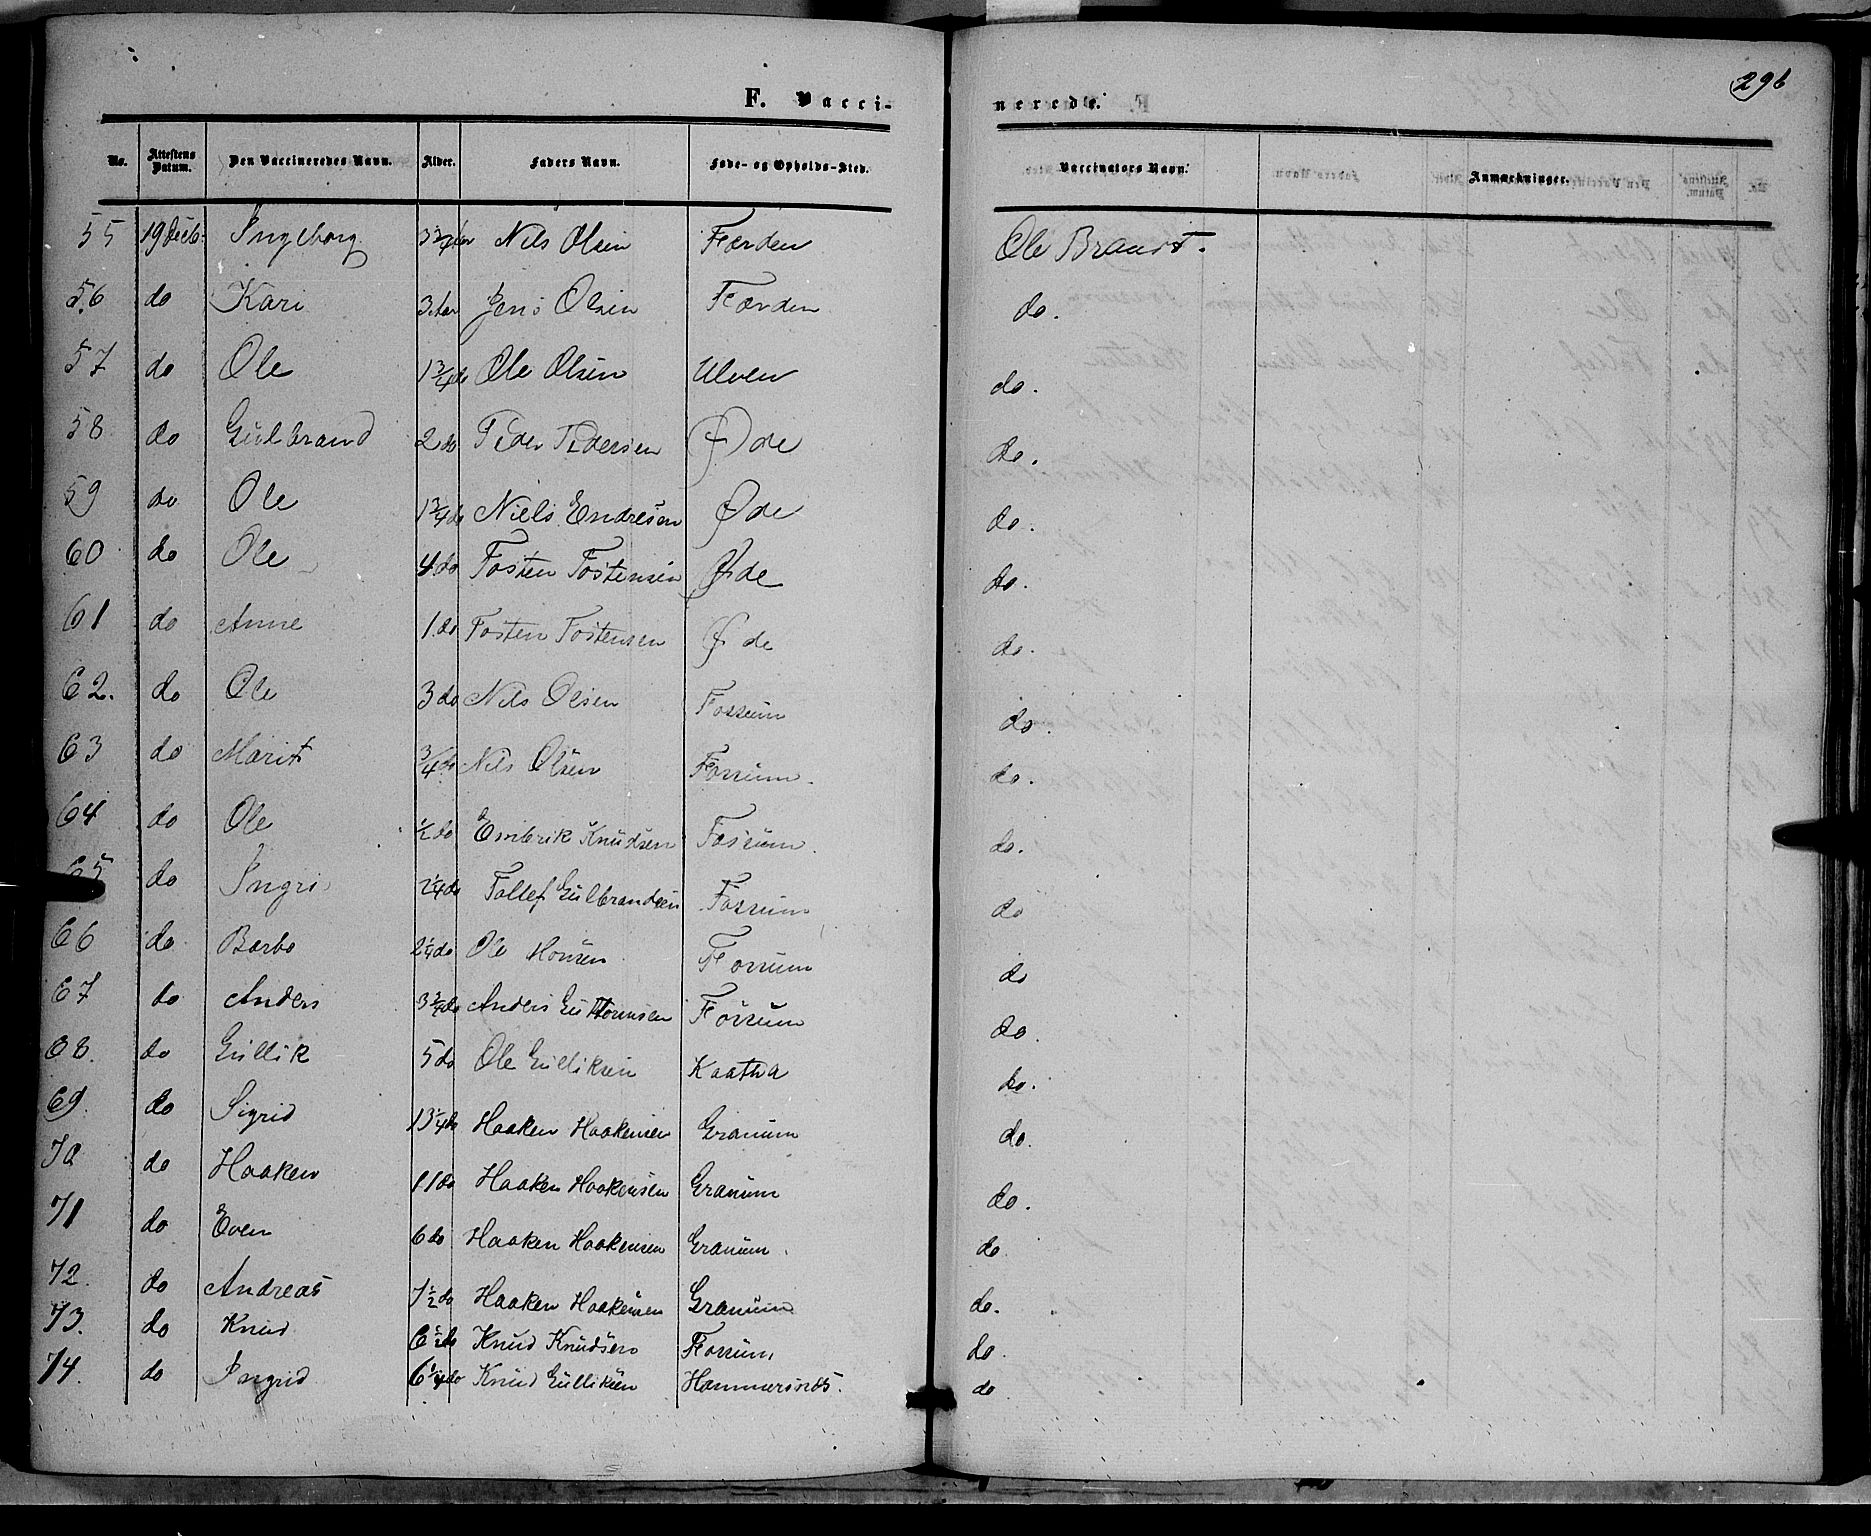 296
F. Vacci-
nerede.
No. Attestens Datum. Den Vaccineredes Navn. Alder. Faders Navn. Føde- og Opholds-Sted. Vaccinators Navn. Anmærkninger.
55 19 Decb. Ingeborg 3 3/4 Aar Nils Olsen Færden Ole Brandt.
56 do Kari 3 Aar Jens Olsen Færden do.
57 do Ole 1 3/4 do Ole Olsen Ulven do.
58 do Gulbrand 2 do Peder Pedersen Øde do.
59 do Ole 1 3/4 do Niels Endresen Øde do.
60 do Ole 4 do Tosten Tostensen Øde do.
61 do Anne 1 do Tosten Tostensen Øde do.
62. do Ole 3 do Nils Olsen Fossum do.
63 do Marit 3/4 do Nils Olsen Fossum. do.
64 do Ole 1/2 do Embrik Knudsen Fossum. do.
65 do Ingri 2 1/4 do Tollef Gulbrandsen Fossum do
66 do Barbo 2 1/4 do Ole Monsen Fossum do
67 do Anders 3 3/4 do Anders Guttormsen Fossum do.
68. do Gullik 5 do Ole Gulliksen Kaatha do.
69. do Sigrid 13 1/4 do Haaken Haakensen Granum do.
70 do Haaken 11 do Haaken Haakensen Granum do.
71 do Even 6 do Haaken Haakensen Granum. do
72. do Andreas 7 1/2 do Haaken Haakensen Granum do.
73. do Knud 6 1/2 do Knud Knudsen Fossum do.
74. do Ingrid 6 1/4 do Knud Gulliksen Hammersnæs. do